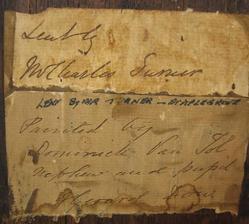 Lent by
Mr Charles Turner
LENT BY MR TURNER – STAPLEGROVE
Painted by
Dominick Van Tol
nephew and pupil
Gherard Dow